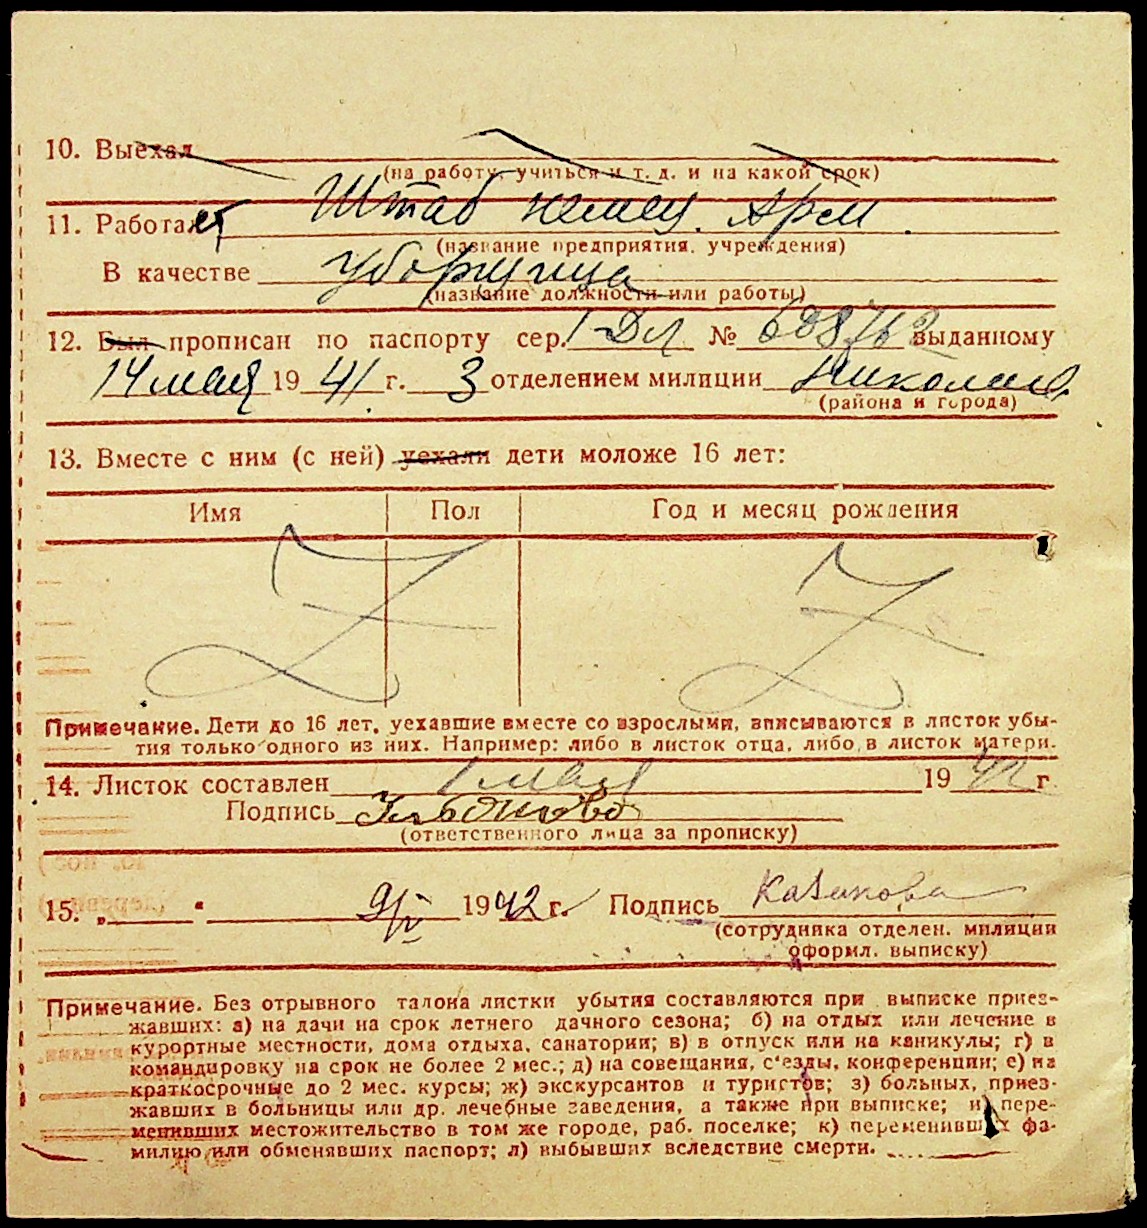 10. Выехал
(на работу, учиться и т. д. и на какой срок)
Штаб немец. Арм.
11. Работает
(название предприятия, учреждения)
В качестве уборщица
(название должности или работы)
12. Был прописан по паспорту сер. 1-Дл № выданному
14 мая 1941 г. 3 отделением милиции Николаев
(района и города)
13. Вместе с ним (с ней) уехали дети моложе 16 лет:
Имя Пол Год и месяц рождения
Z Z
Примечание. Дети до 16 лет, уехавшие вместе со взрослыми, вписываются в листок убы-
тия только одного из них. Например: либо в листок отца, либо в листок матери.
14. Листок составлен 1 мая 1942 г
Подпись
(ответственного лица за прописку)
15. „ “ 9/V 1942 г. Подпись Казакова
(сотрудника отделен. милиции
оформл. выписку)
Примечание. Без отрывного талона листки убытия составляются при выписке приез-
жавших: а) на дачи на срок летнего дачного сезона; б) на отдых или лечение в
курортные местности, дома отдыха, санатории; в) в отпуск или на каникулы; г) в
командировку на срок не более 2 мес.; д) на совещания, с'езды, конференции; е) на
краткосрочные до 2 мес. курсы; ж) экскурсантов и туристов; з) больных, приез-
жавших в больницы или др. лечебные заведения, а также при выписке; и) пере-
менивших местожительство в том же городе, раб. поселке; к) переменивших фа-
милию или обменявших паспорт; л) выбывших вследствие смерти.